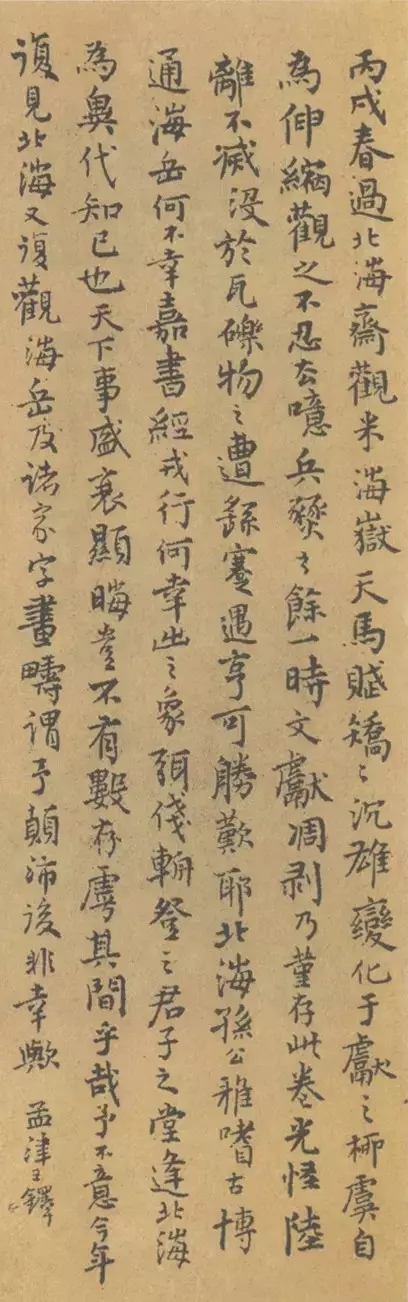 丙戌春過北海齋觀米海嶽天馬賦矯〻沉雄變化于獻之柳虞自
為伸縮觀之不忍去噫兵燹之餘一時文獻凋剥乃堇存此卷光怪陸
離不滅沒於瓦礫物之遭蹇遇亨可勝歎耶北海孫公雅嗜古博
通海岳何不幸嘉書經戎行何幸出之象弭俴輈登之君子之堂逢北海
為異代知已也天下事盛衰顯晦豈不有數存虖其間乎哉予不意今年
復見北海又復觀海岳及諸家字畫疇謂予顛沛後非幸歟 孟津王鐸